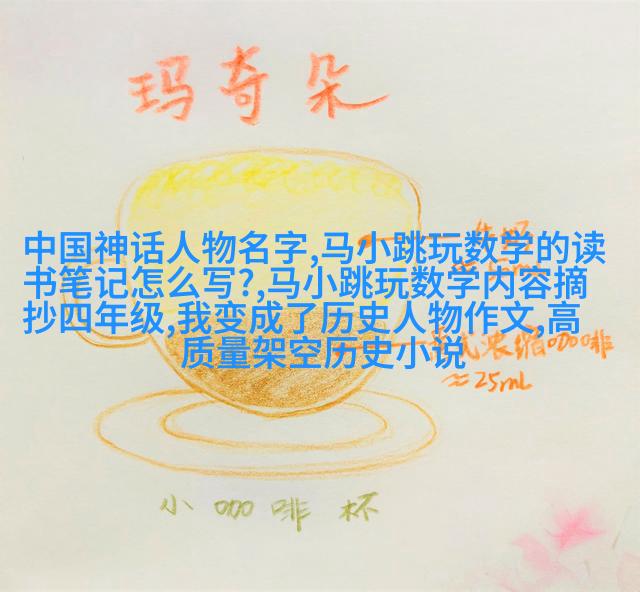 玛奇朵
中国神话人物名字,马小跳玩数学的读
书笔记怎么写?,马小跳玩数学内容摘
抄四年级,我变成了历史人物作文,高
质量架空历史小说
浓缩咖啡
≈25mL
小咖啡杯